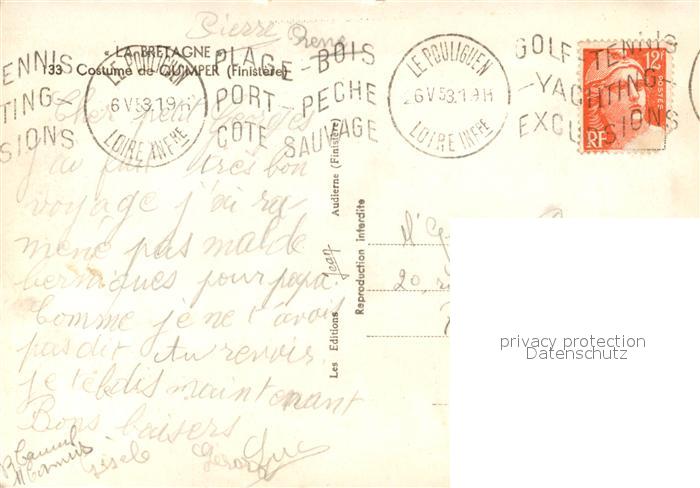 Pierre
« LA BRETAGNE »
133 Costume de QUIMPER (Finistère)
TENNIS
YACHTING-
EXCURSIONS
LE POULIGUEN
6 V 53.19H
LOIRE INFRE
PLAGE - BOIS
PORT - PECHE
COTE SAUVAGE
LE POULIGUEN
6 V 53.19H
LOIRE INFRE
GOLF-TENNIS
-YACHTING-
EXCURSIONS
12F
POSTES
RF
Cher petit Georges
J'ai fait très bon
voyage j'ai ra
mené pas mal de
berniques pour papa
Comme je ne t'avois
pas dit Au revoir
je te le dis maintenant
Bons baisers
Gisele
Gérard
Luc
Les Editions Jean Audierne (Finistère)
Reproduction interdite
20,
privacy protection
Datenschutz